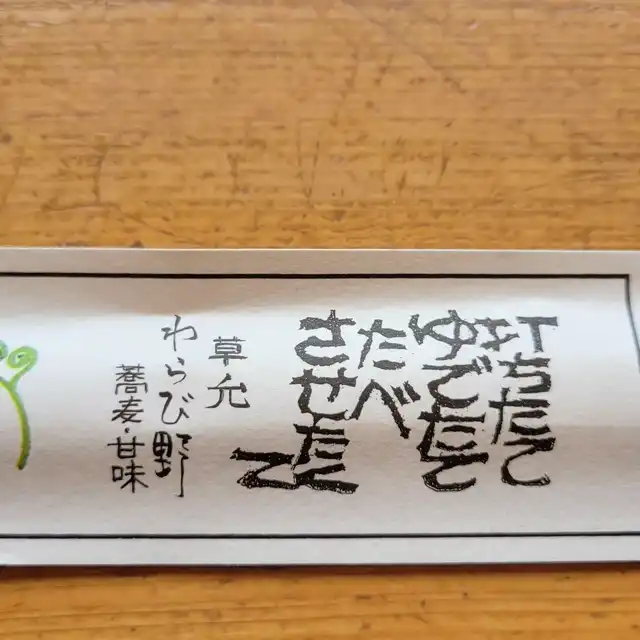 打ちたて
ゆでたて
たべ
させた
草・允
わらび野
蕎麦・甘味